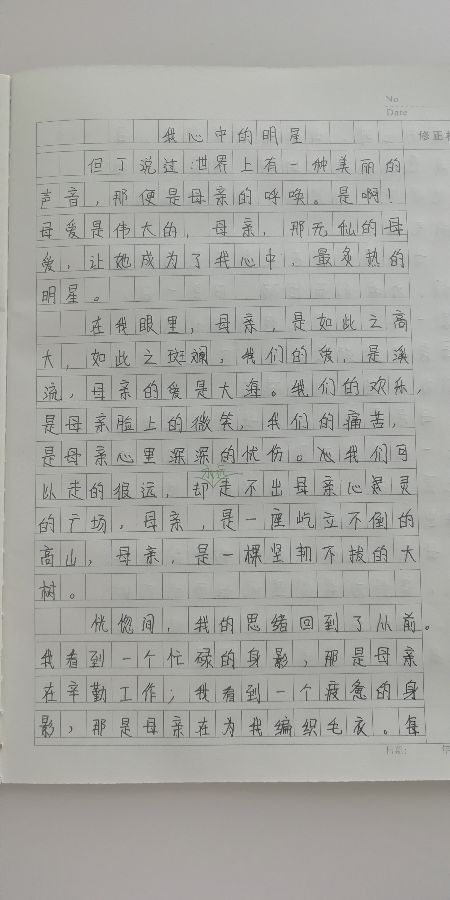 No
Date
修正
我心中的明星
但丁说过:世界上有一种美丽的
声音，那便是母亲的呼唤。是啊！
母爱是伟大的，母亲，那无私的母
爱，让她成为了我心中，最炙热的
明星。
在我眼里，母亲，是如此之高
大，如此之斑斓，我们的爱，是溪
流，母亲的爱是大海。我们的欢乐，
是母亲脸上的微笑，我们的痛苦，
是母亲心里深深的忧伤。 我们可
永远
以走的很远，却走不出母亲心灵
的广场，母亲，是一座屹立不倒的
高山，母亲，是一棵坚韧不拔的大
树。
恍惚间，我的思绪回到了从前。
我看到一个忙碌的身影，那是母亲
在辛勤工作；我看到一个疲惫的身
影，那是母亲在为我编织毛衣。每